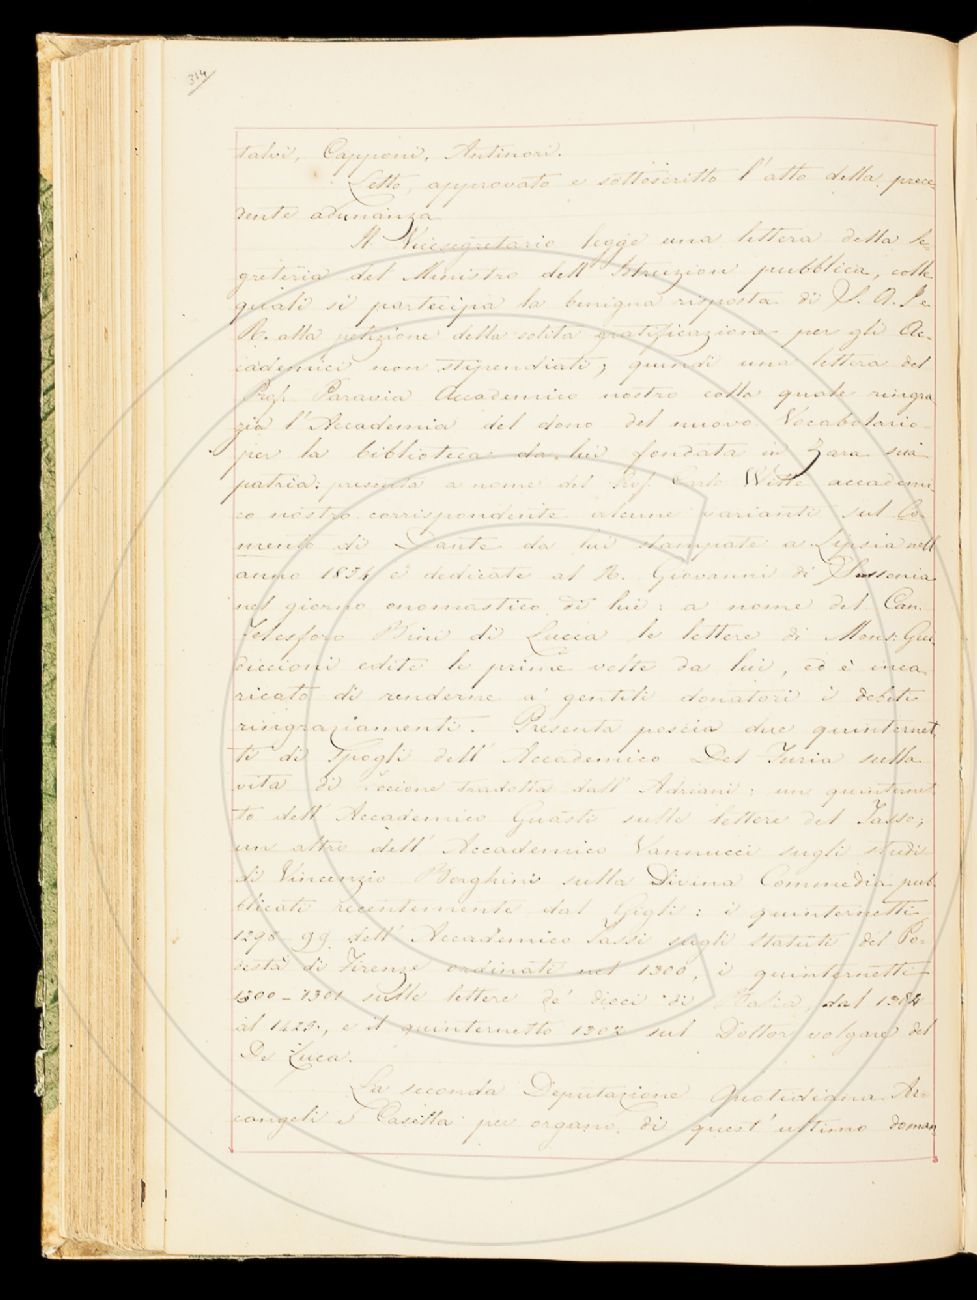 314
talvi, Capponi, Antinori.
Letto, approvato e sottoscritto l'atto della prece-
dente adunanza
Il Vicesegretario legge una lettera della Se-
greteria del Ministro dell'Istruzion pubblica, colle
quali si partecipa la benigna risposta di S. A. I. e
R. alla petizione della solita gratificazione per gli Ac-
cademici non stipendiati; quindi una lettera del
Prof. Paravia Accademico nostro colla quale ringra
zia l'Accademia del dono del nuovo Vocabolario
per la biblioteca da lui fondata in Zara sua
patria: presenta a nome del Prof. Carlo Witte accademi-
co nostro corrispondente alcune varianti sul Co-
mento di Dante da lui stampate a Lipsia nell
anno 1854 e dedicate al R. Giovanni di Sassonia
nel giorno onomastico di lui: a nome del Can.
Telesforo Bini di Lucca le lettere di Mons. Gui
diccioni edite le prime volte da lui, ed è inca
ricato di renderne a' gentili donatori i debiti
ringraziamenti. Presenta poscia due quinternet
ti di Spogli dell'Accademico Del Furia sulla
vita di Focione tradotta dall'Adriani; un quinternet
to dell'Accademico Guasti sulle lettere del Tasso;
un altro dell'Accademico Vannucci sugli studi
di Vincenzio Borghini sulla Divina Commedia pub
blicati recentemente dal Gigli: i quinternetti
1298-99 dell'Accademico Tassi sugli Statuti del Po-
testà di Firenze ordinati nel 1300, i quinternetti
1300-1301 sulle lettere de' dieci di Balia, dal 1384
al 1423, e il quinternetto 1302 sul Dottor volgare del
De Luca.
La seconda Deputazione Quotidiana Ar-
cangeli e Casella per organo di quest'ultimo doman